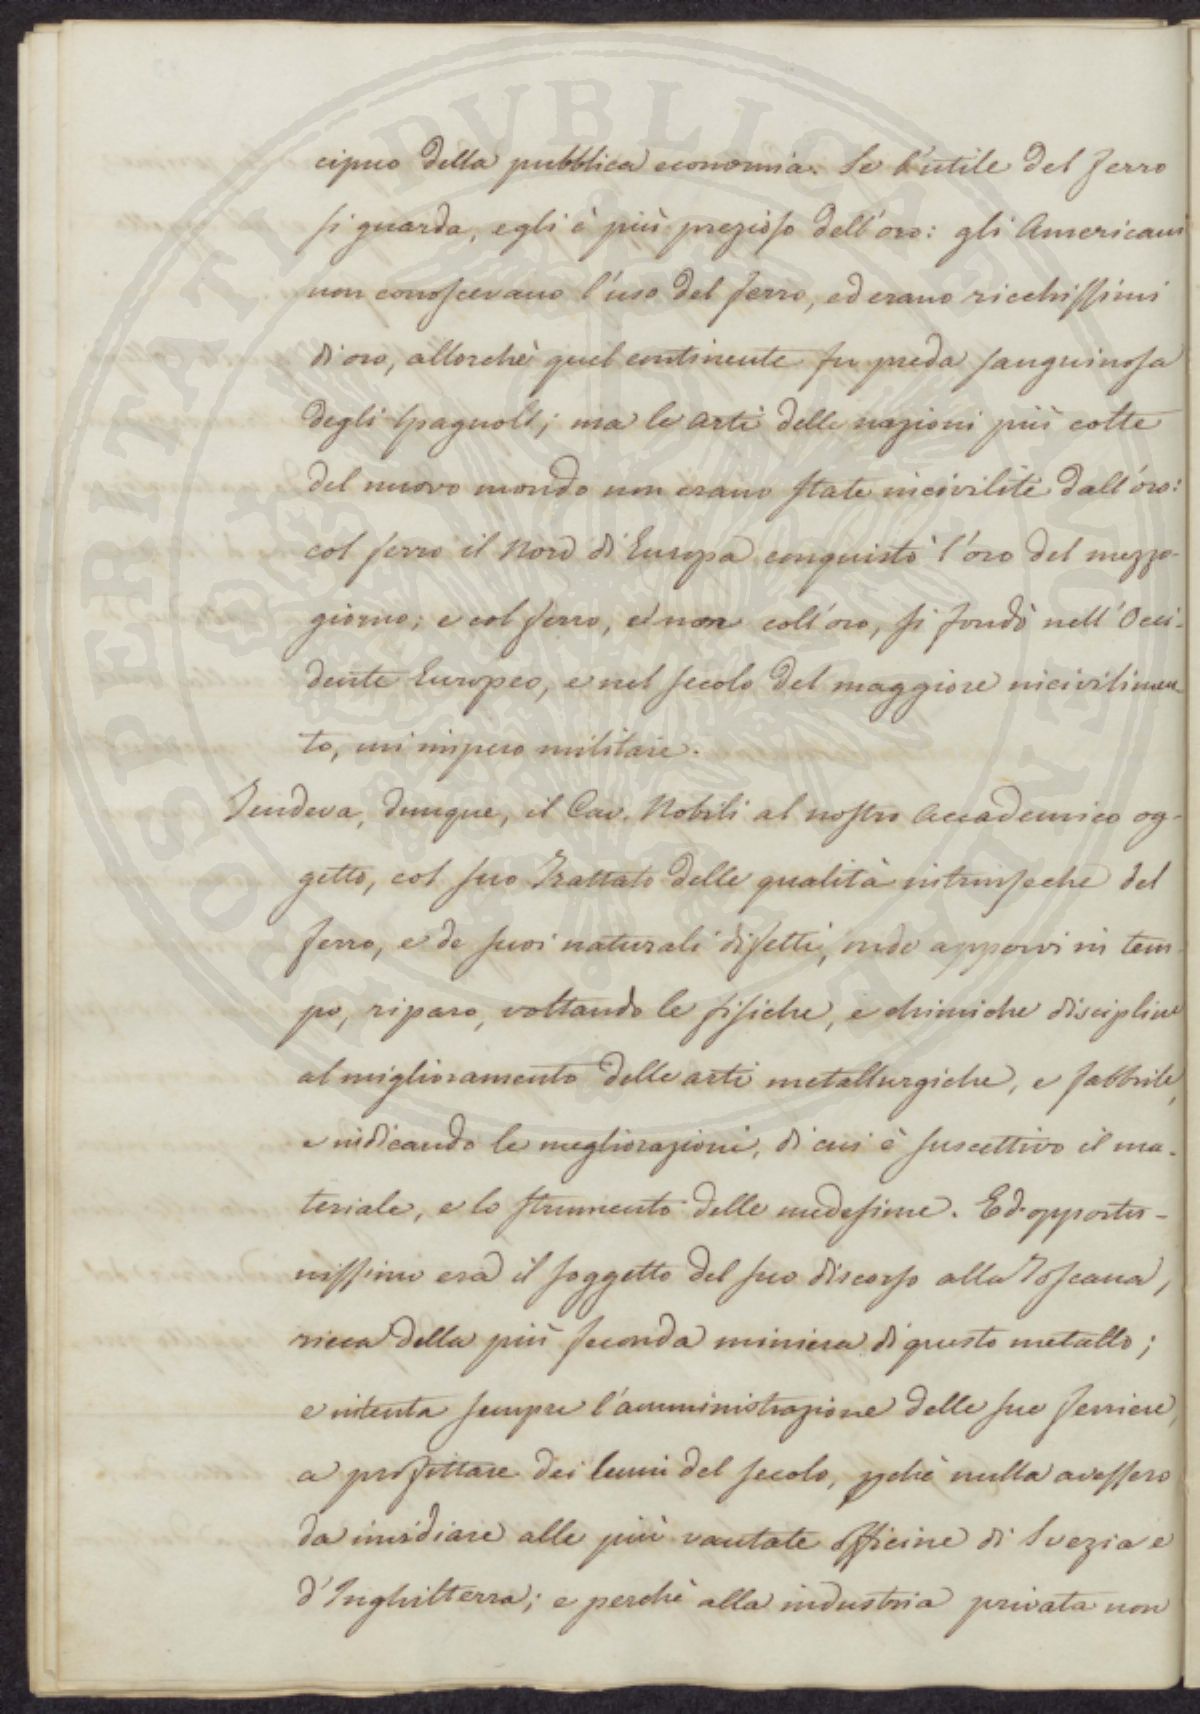 cipuo della pubblica economia. Se l'utile del ferro
si guarda, egli è più prezioso dell'oro: gli Americani
non conoscevano l'uso del ferro, ed erano ricchissimi
di oro, allorchè quel continente fu preda sanguinosa
degli Spagnoli; ma le arti delle nazioni più colte
del nuovo mondo non erano state incivilite dall'oro:
col ferro il Nord di Europa conquistò l'oro del mezzo-
giorno; e col ferro, e non coll'oro, si fondò nell'Occi-
dente Europeo, e nel secolo del maggiore incivilimen-
to, un impero militare.
Tendeva, dunque, il Cav. Nobili al nostro Accademico og-
getto, col suo Trattato delle qualità intrinseche del
ferro, e de suoi naturali difetti, onde apporvi in tem-
po, riparo, voltando le fisiche, e chimiche discipline
al miglioramento delle arti metallurgiche, e fabbrile,
e indicando le megliorazioni, di cui è suscettivo il ma-
teriale, e lo strumento delle medesime. Ed opportu-
nissimo era il soggetto del suo discorso alla Toscana,
ricca della più feconda miniera di questo metallo;
e intenta sempre l'amministrazione delle sue ferriere,
a profittare dei lumi del secolo, pchè nulla avessero
da invidiare alle più vantate officine di Svezia e
d'Inghilterra; e perchè alla industria privata non
PROSPERITATI PVBLICAE AVGENDAE